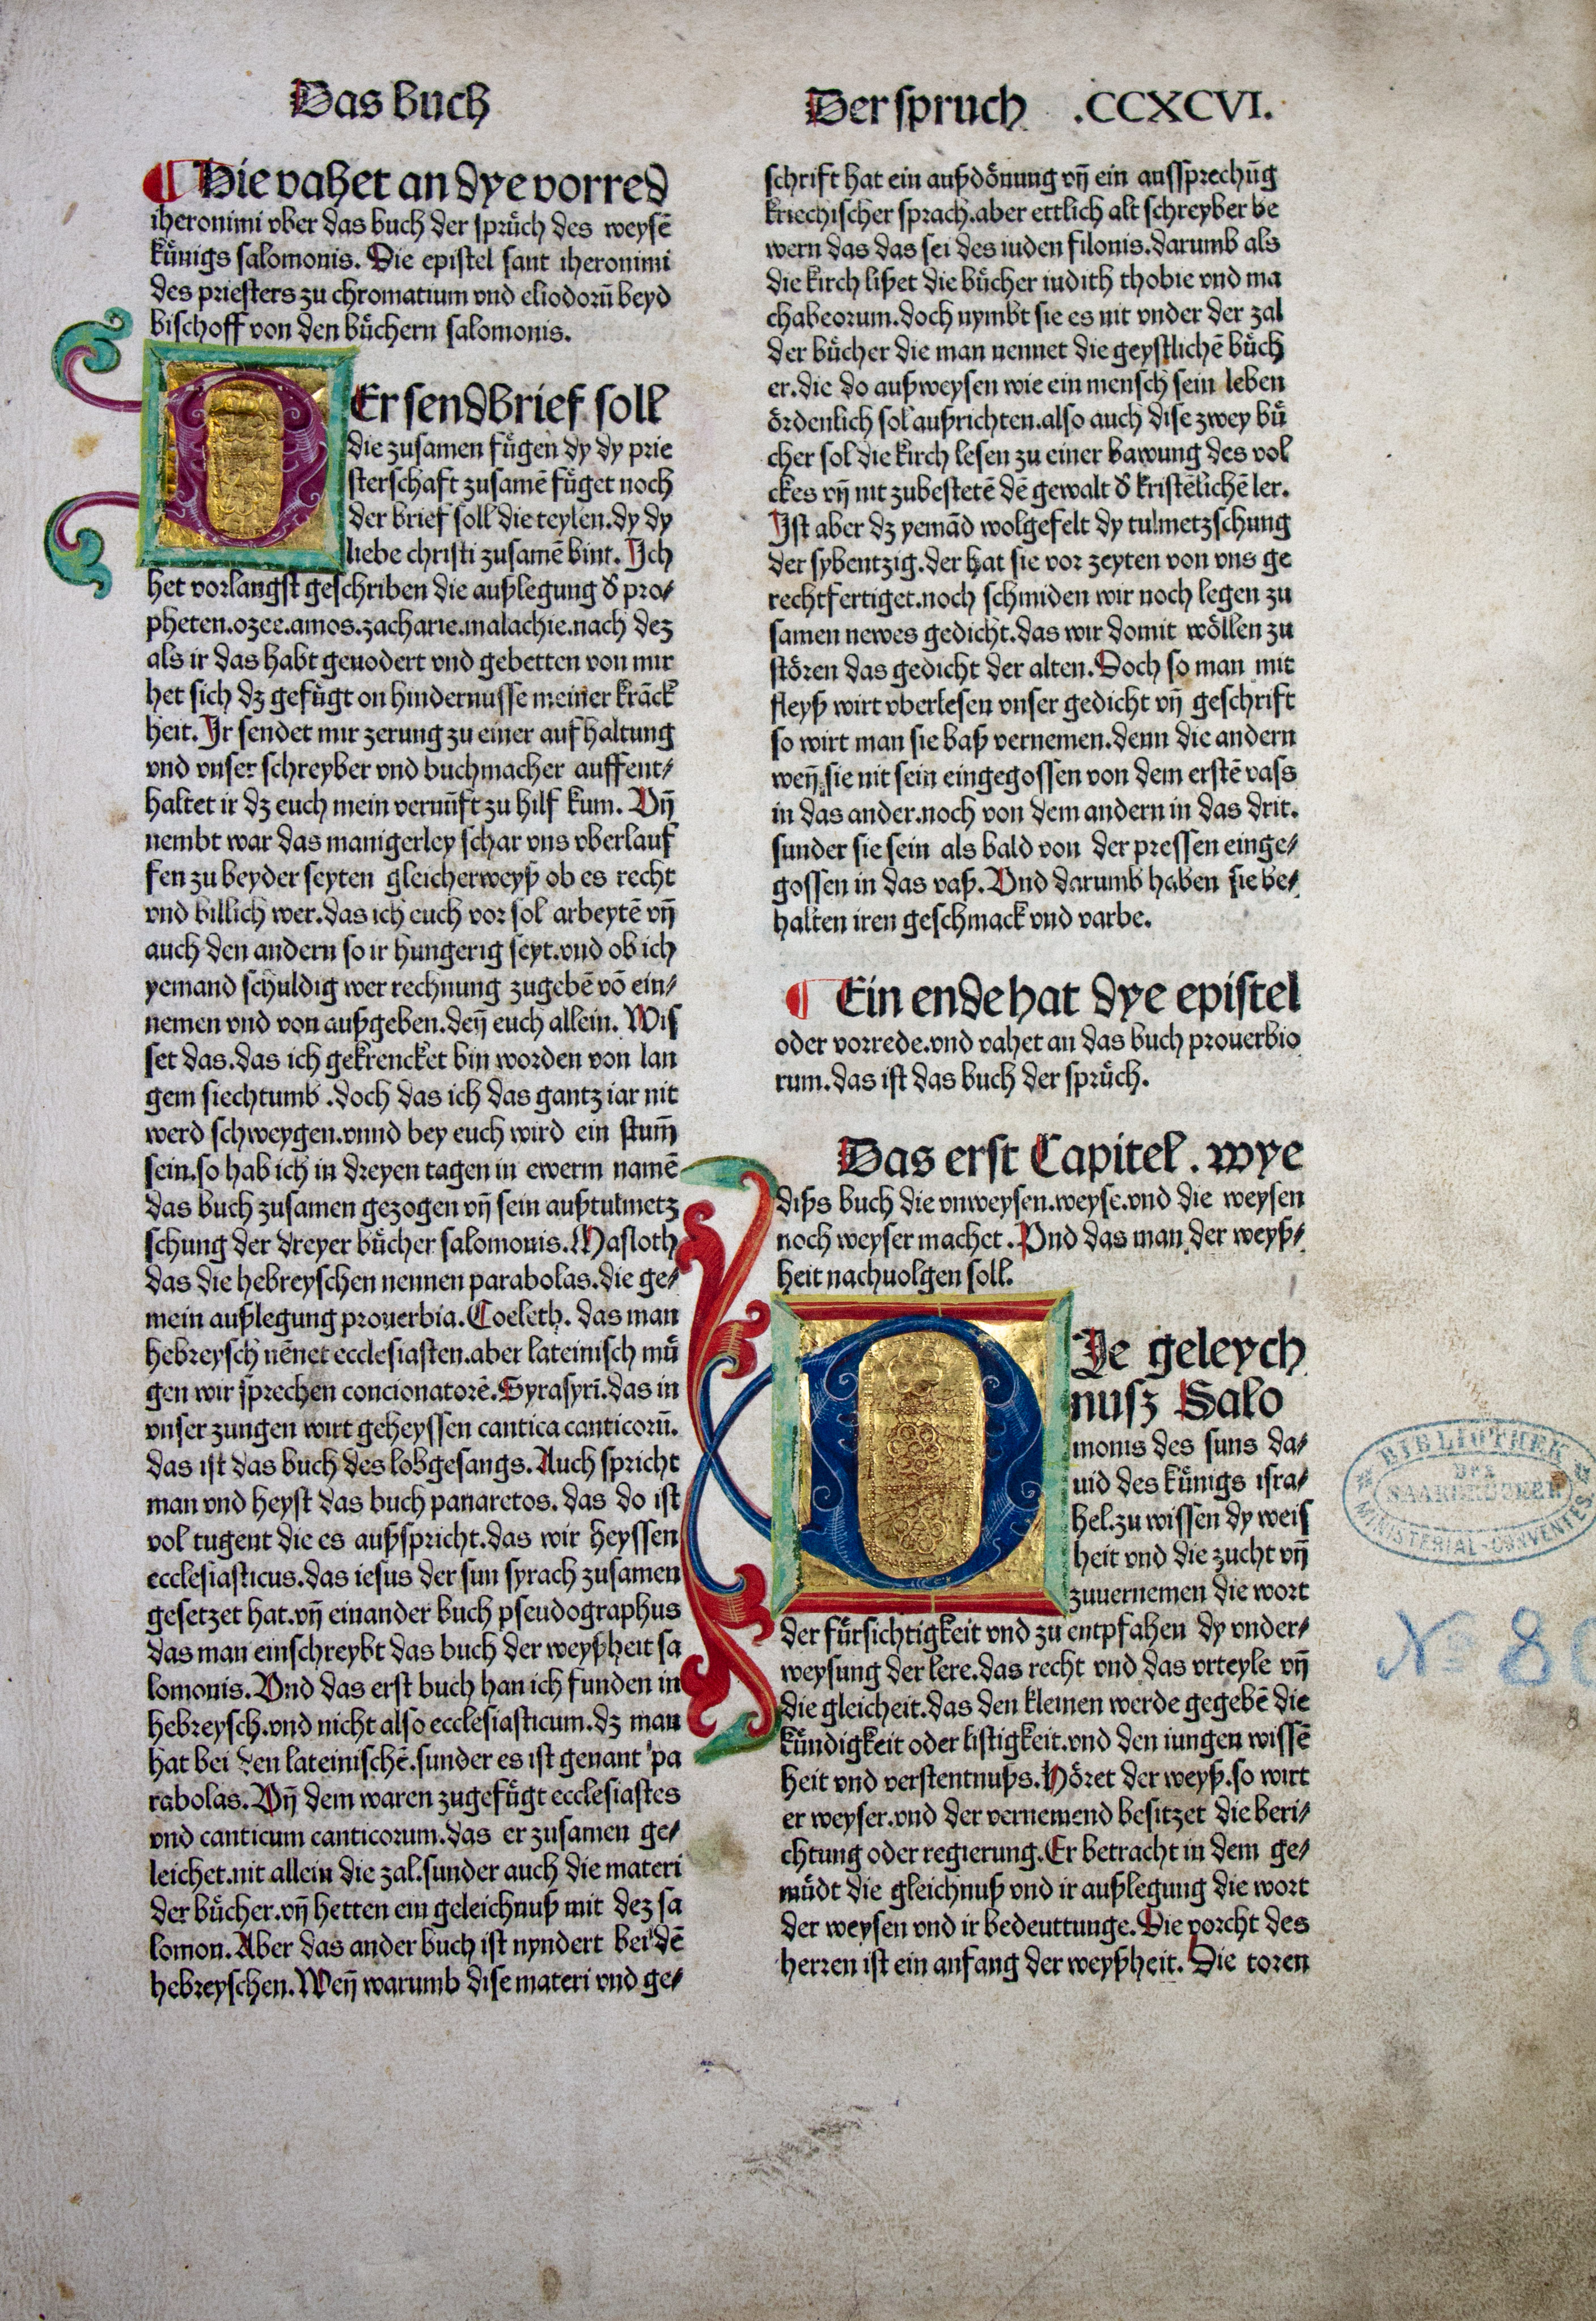 Das buch
Der spruch .CCXCVI.
¶ Hie vahet an dye vorred
iheronimi vber das buch der sprůch des weysē
kůnigs salomonis. Die epistel sant iheronimi
des priesters zu chromatium vnd eliodorū beyd
bischoff von den bůchern salomonis.
DEr sendbrief soll
die zusamen fůgen dy dy prie
sterschaft zusamē fůget noch
der brief soll die teylen. dy dy
liebe christi zusamē bint. Ich
het vorlangst geschriben die außlegung d̕ pro⸗
pheten. ozee. amos. zacharie. malachie. nach dez
als ir das habt geuodert vnd gebetten von mir
het sich dz gefůgt on hindernusse meiner krāck
heit. Ir sendet mir zerung zu einer aufhaltung
vnd vnser schreyber vnd buchmacher auffent⸗
haltet ir dz euch mein vernūft zu hilf kum. Vn̄
nembt war das manigerley schar vns vberlauf
fen zu beyder seyten gleicherweyß ob es recht
vnd billich wer. das ich euch vor sol arbeytē vn̄
auch den andern so ir hungerig seyt. vnd ob ich
yemand schuldig wer rechnung zugebē vō ein⸗
nemen vnd von außgeben. den̄ euch allein. Wis
set das. das ich gekrencket bin worden von lan
gem siechtumb. doch das ich das gantz iar nit
werd schweygen. vnnd bey euch wird ein stum̄
sein. so hab ich in dreyen tagen in ewerm namē
das buch zusamen gezogen vn̄ sein außtulmetz
schung der dreyer bůcher salomonis. Masloth
das die hebreyschen nennen parabolas. die ge⸗
mein außlegung prouerbia. Coeleth. das man
hebreysch nēnet ecclesiasten. aber lateinisch mů
gen wir sprechen concionatorē. Syrasyrī. das in
vnser zungen wirt geheyssen cantica canticorū.
das ist das buch des lobgesangs. Auch spricht
man vnd heyst das buch panaretos. das do ist
vol tugent die es außspricht. das wir heyssen
ecclesiasticus. das iesus der sun syrach zusamen
gesetzet hat. vn̄ einander buch pseudographus
das man einschreybt das buch der weyßheit sa
lomonis. Vnd das erst buch han ich funden in
hebreysch. vnd nicht also ecclesiasticum. dz man
hat bei den lateinischē. sunder es ist genant pa
rabolas. Vn̄ dem waren zugefůgt ecclesiastes
vnd canticum canticorum. das er zusamen ge⸗
leichet. nit allein die zal. sunder auch die materi
der bůcher. vn̄ hetten ein geleichnuß mit dez sa
lomon. Aber das ander buch ist nyndert bei dē
hebreyschen. Wen̄ warumb dise materi vnd ge⸗
schrift hat ein außdönung vn̄ ein aussprechūg
kriechischer sprach. aber ettlich alt schreyber be
wern das das sei des iuden filonis. darumb als
die kirch lißet die bůcher iudith thobie vnd ma
chabeorum. doch nymbt sie es nit vnder der zal
der bůcher die man nennet die geystlichē bůch
er. die do außweysen wie ein mensch sein leben
ördenlich sol außrichten. also auch dise zwey bů
cher sol die kirch lesen zu einer bawung des vol
ckes vn̄ nit zubestetē dē gewalt d̕ kristēlichē ler.
Ist aber dz yemād wolgefelt dy tulmetzschung
der sybentzig. der hat sie vor zeyten von vns ge
rechtfertiget. noch schmiden wir noch legen zu
samen newes gedicht. das wir domit wöllen zu
stören das gedicht der alten. Doch so man mit
fleyß wirt vberlesen vnser gedicht vn̄ geschrift
so wirt man sie baß vernemen. denn die andern
wen̄ sie nit sein eingegossen von dem erstē vass
in das ander. noch von dem andern in das drit.
sunder sie sein als bald von der pressen einge⸗
gossen in das vaß. Vnd darumb haben sie be⸗
halten iren geschmack vnd varbe.
¶ Ein ende hat dye epistel
oder vorrede. vnd vahet an das buch prouerbio
rum. das ist das buch der sprůch.
Das erst Capitel. wye
diß buch die vnweysen. weyse. vnd die weysen
noch weyser machet. Vnd das man der weyß⸗
heit nachuolgen soll.
DIe geleych
nusz Salo
monis des suns da⸗
uid des kůnigs isra⸗
hel. zu wissen dy weis
heit vnd die zucht vn̄
zuuernemen die wort
der fürsichtigkeit vnd zu entpfahen dy vnder⸗
weysung der lere. das recht vnd das vrteyle vn̄
die gleicheit. das den kleinen werde gegebē die
kündigkeit oder listigkeit. vnd den iungen wissē
heit vnd verstentnuß. Höret der weyß. so wirt
er weyser. vnd der vernemend besitzet die beri⸗
chtung oder regierung. Er betracht in dem ge⸗
můdt die gleichnuß vnd ir außlegung die wort
der weysen vnd ir bedeuttunge. Die vorcht des
herren ist ein anfang der weyßheit. Die toren
BIBLIOTHEK
DES
SAARBRÜCKER
MINISTERIAL-CONVENTES
No 80